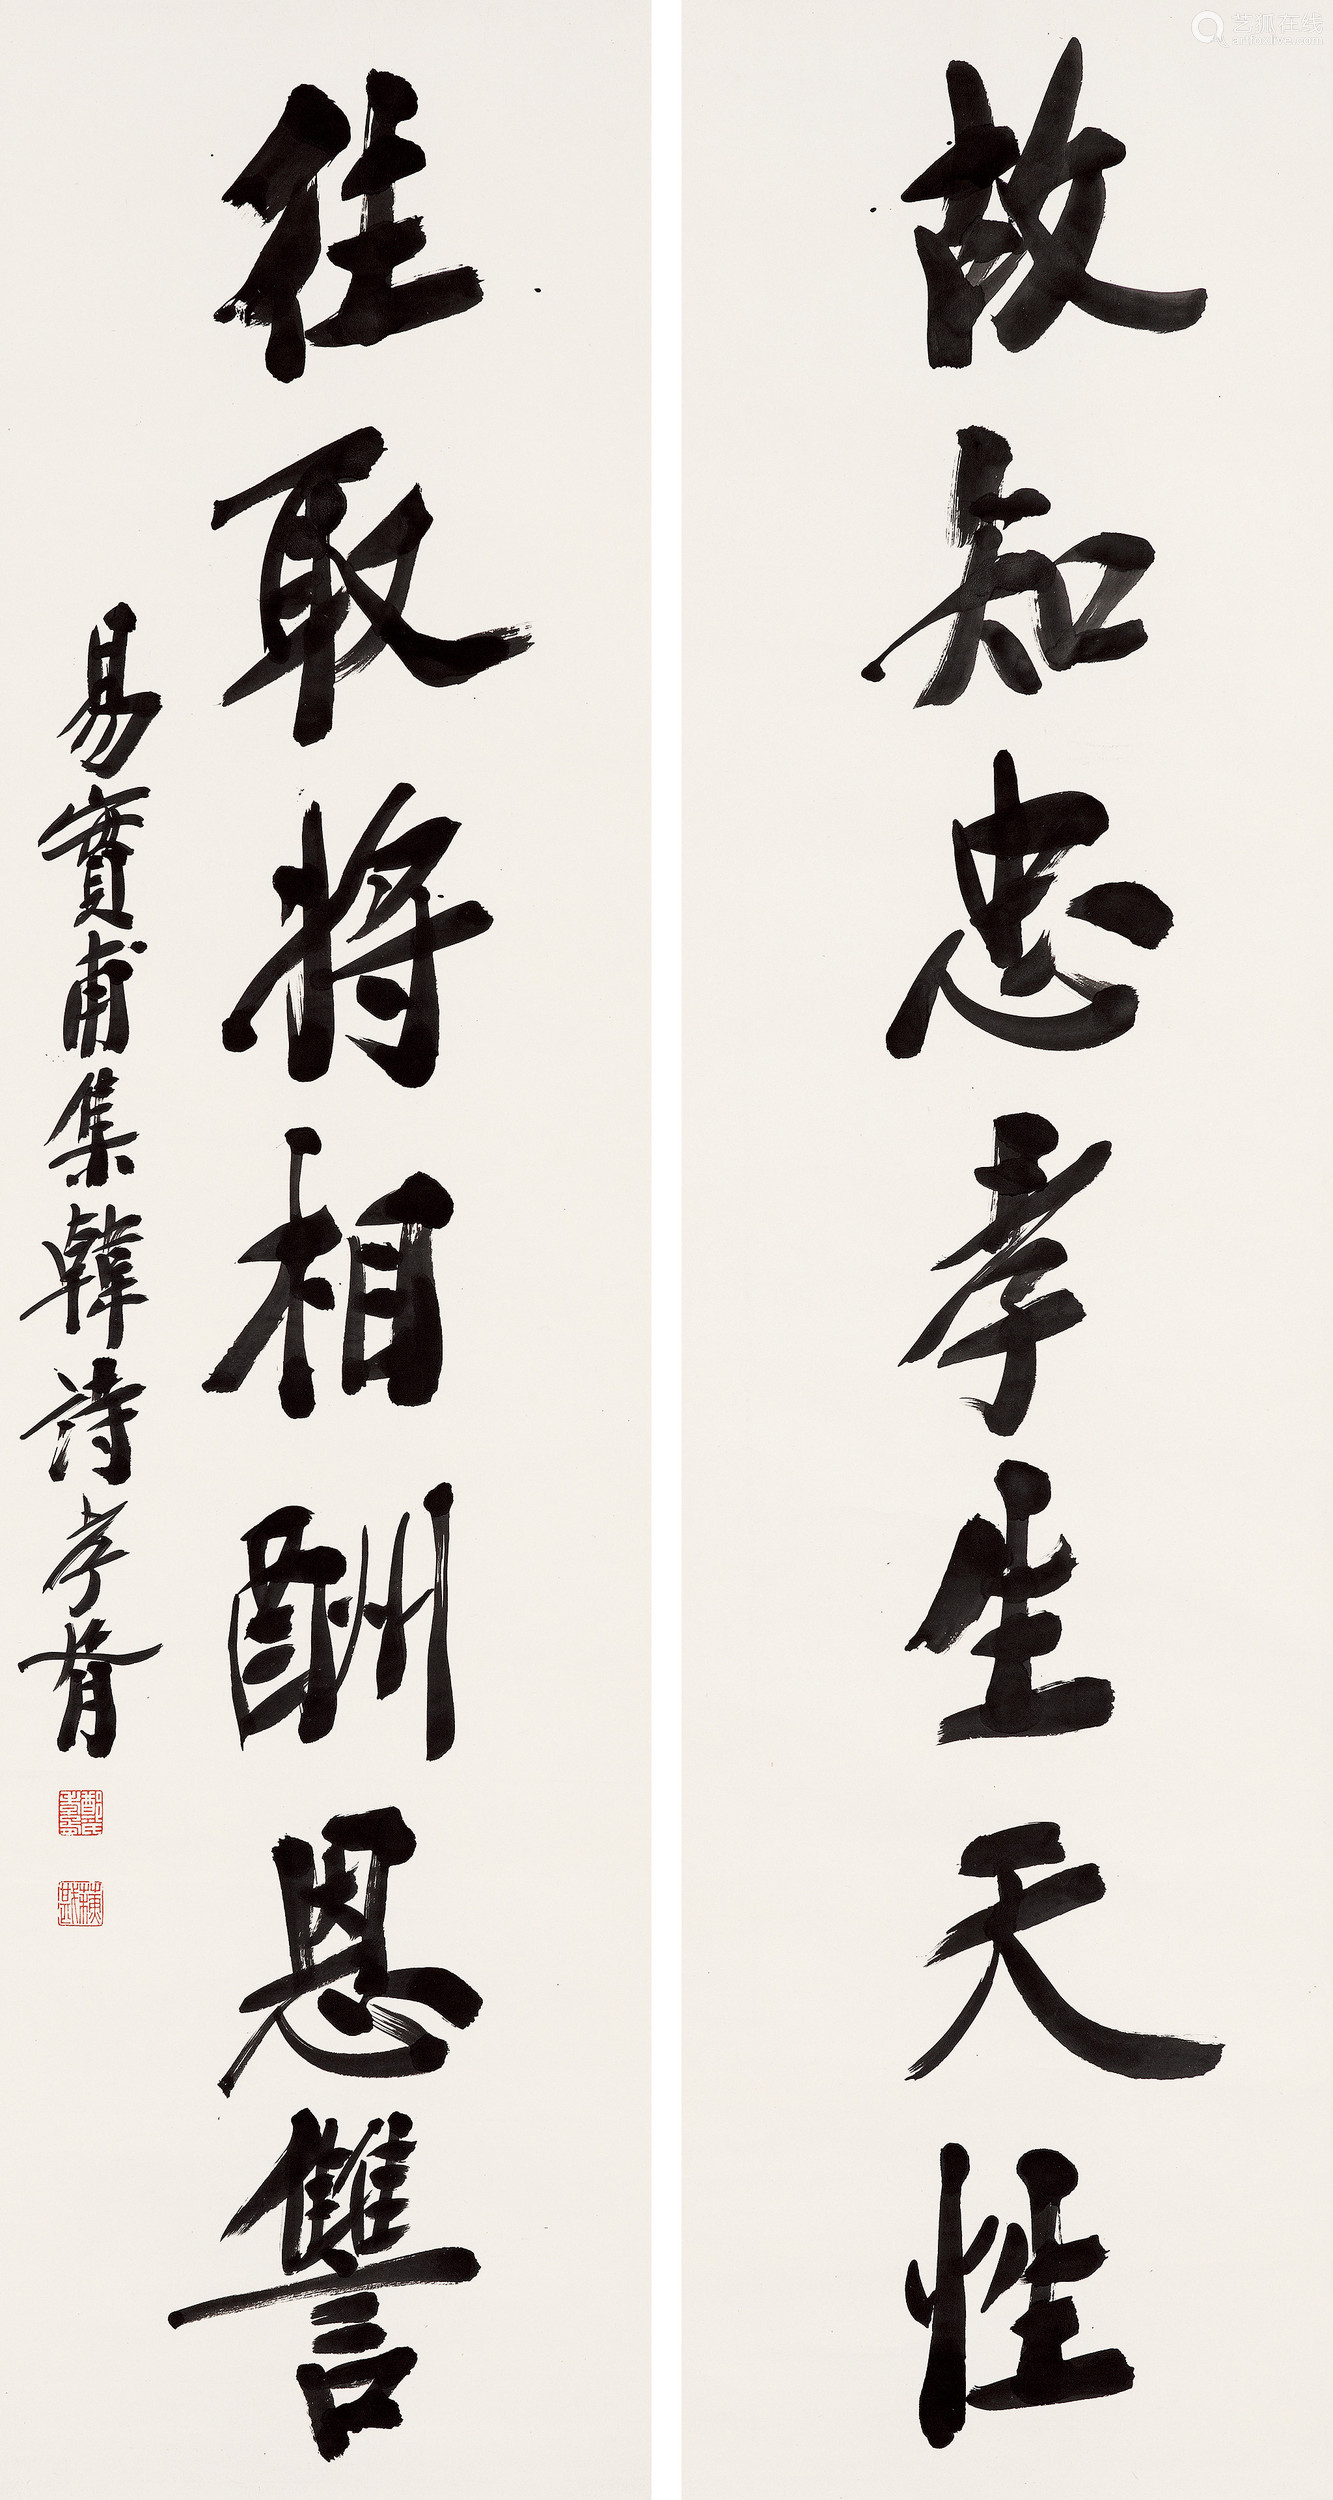 故知忠孝生天性
往取將相酬恩讐
易實甫集韓詩孝胥
蘇戡
艺狐在线
artfoxlive.com